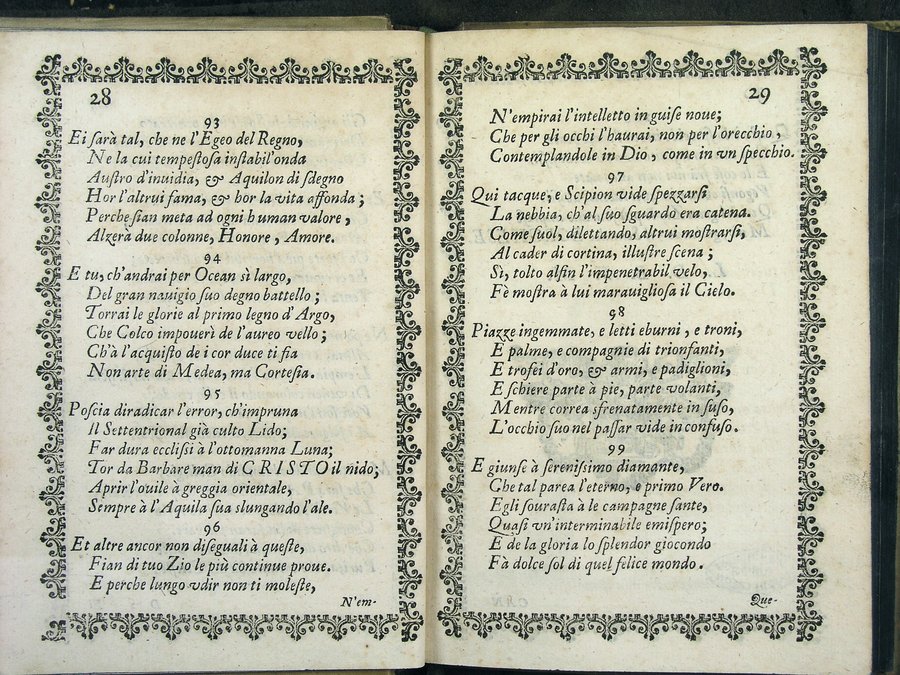 28
93
Ei ſarà tal, che ne l'Egeo del Regno,
Ne la cui tempeſtoſa inſtabil'onda
Auſtro d'inuidia, & Aquilon di ſdegno
Hor l'altrui fama, & hor la vita affonda;
Perche ſian meta ad ogni human valore,
Alzerà due colonne, Honore, Amore.
94
E tu, ch'andrai per Ocean sì largo,
Del gran nauigio ſuo degno battello;
Torrai le glorie al primo legno d'Argo,
Che Colco impouerì de l'aureo vello;
Ch'à l'acquiſto de i cor duce ti fia
Non arte di Medea, ma Corteſia.
95
Poſcia diradicar l'error, ch'impruna
Il Settentrional già culto Lido;
Far dura eccliſſi à l'ottomanna Luna;
Tor da Barbare man di CRISTO il nido;
Aprir l'ouile à greggia orientale,
Sempre à l'Aquila ſua slungando l'ale.
96
Et altre ancor non diſeguali à queſte,
Fian di tuo Zio le più continue proue.
E perche lungo vdir non ti moleſte,
N'em-
29
N'empirai l'intelletto in guiſe noue;
Che per gli occhi l'haurai, non per l'orecchio,
Contemplandole in Dio, come in vn ſpecchio.
97
Qui tacque, e Scipion vide ſpezzarſi
La nebbia, ch'al ſuo ſguardo era catena.
Come ſuol, dilettando, altrui moſtrarſi,
Al cader di cortina, illuſtre ſcena;
Sì, tolto alfin l'impenetrabil velo,
Fè moſtra à lui marauiglioſa il Cielo.
98
Piazze ingemmate, e letti eburni, e troni,
E palme, e compagnie di trionfanti,
E trofei d'oro, & armi, e padiglioni,
E ſchiere parte à piè, parte volanti,
Mentre correa sfrenatamente in ſuſo,
L'occhio ſuo nel paſſar vide in confuſo.
99
E giunſe à ſereniſſimo diamante,
Che tal parea l'eterno, e primo Vero.
Egli ſouraſta à le campagne ſante,
Quaſi vn'interminabile emiſpero;
E de la gloria lo ſplendor giocondo
Fà dolce ſol di quel felice mondo.
Que-